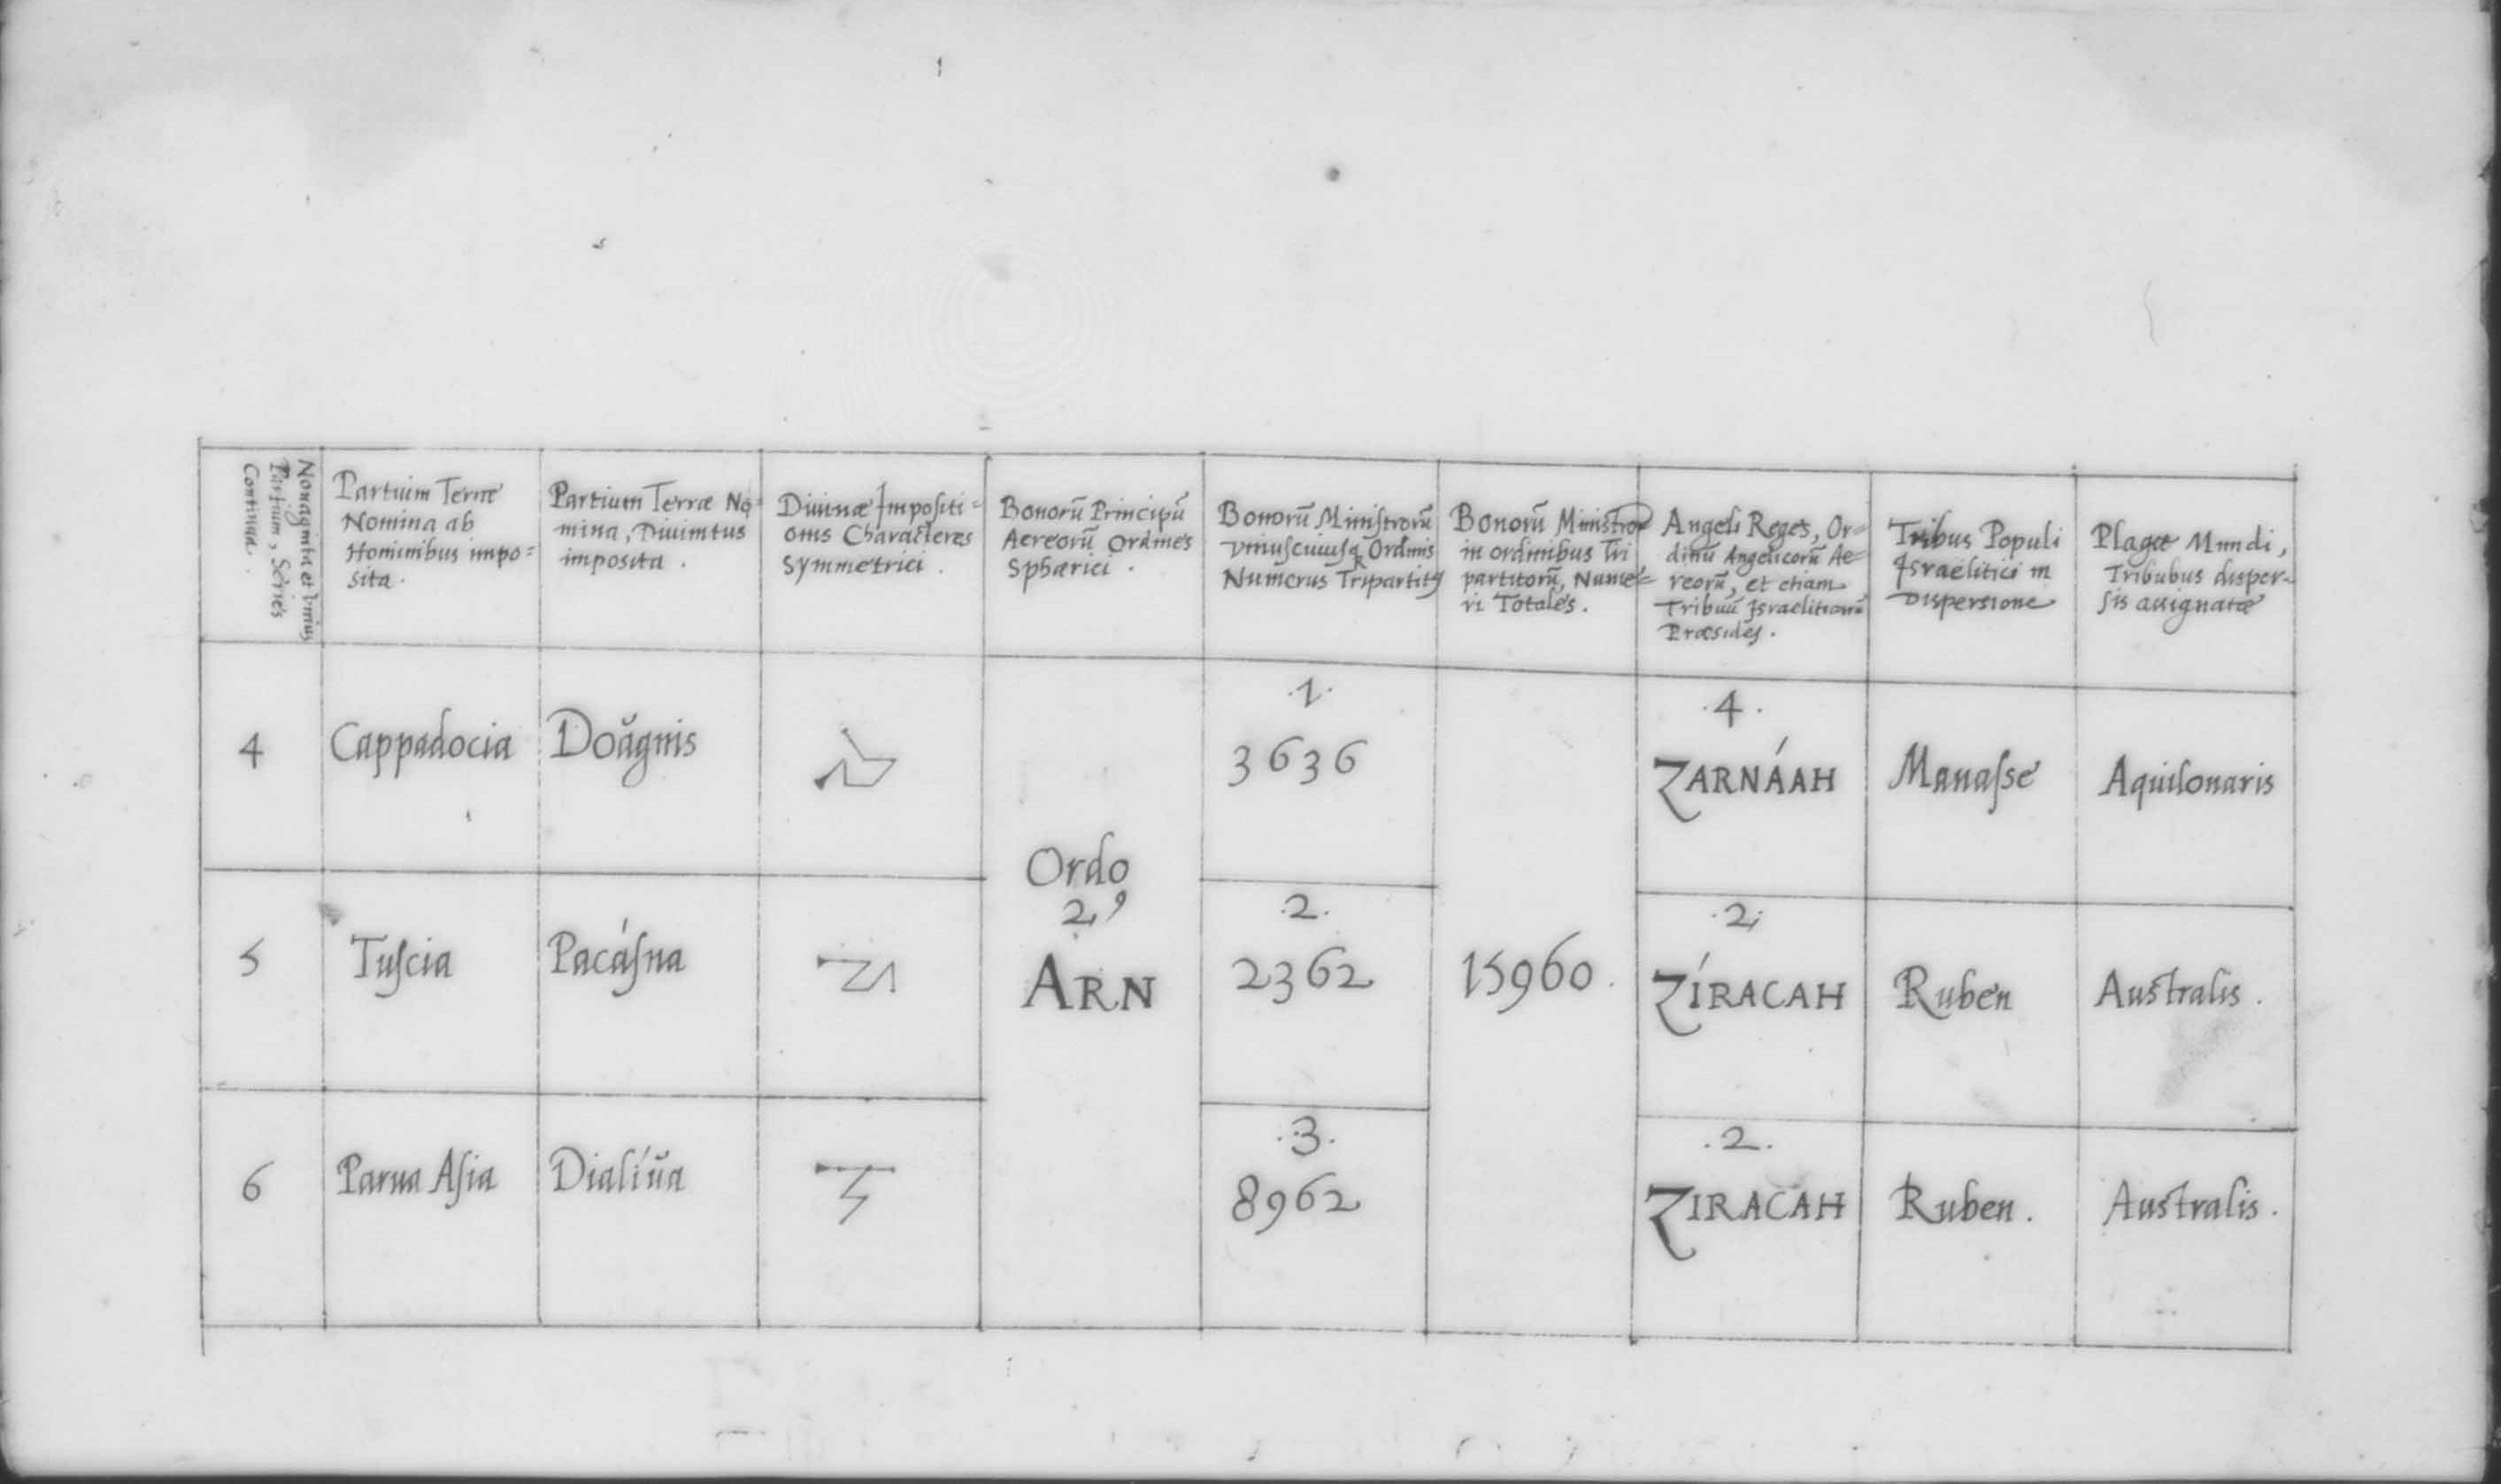 Nonaginta et Vnius
Partium, Series
Continua.
Partium Terræ
Nomina ab
Hominibus impo=
sita.
Partium Terræ No=
mina, Diuinitus
imposita.
Diuinæ Impositi=
onis Characteres
Symmetrici.
Bonorū Principū
Aereorū Ordines
Sphærici.
Bonorū Ministrorū
vniuscuiusq Ordinis
Numerus Tripartitꝰ
Bonorū Ministror
in ordinibus Tri
partitorū, Nume=
ri Totales.
Angeli Reges, Or=
dinū Angelicorū Ae=
reorū, et etiam
Tribuū Israeliticarū
Præsides.
Tribus Populi
Israëlitici in
Dispersione
Plagæ Mundi,
Tribubus disper=
sis assignatæ
4
Cappadocia
Doăgnis
Ordo
2⁹
ARN
.1.
3636
15960.
.4.
ZARNÁAH
Manaſse
Aquilonaris
5
Tuſcia
Pacáſna
.2.
2362
.2.
ZÍRACAH
Ruben
Australis.
6
Parua Aſia
Dialíŭa
.3.
8962
.2.
ZIRACAH
Ruben.
Australis.